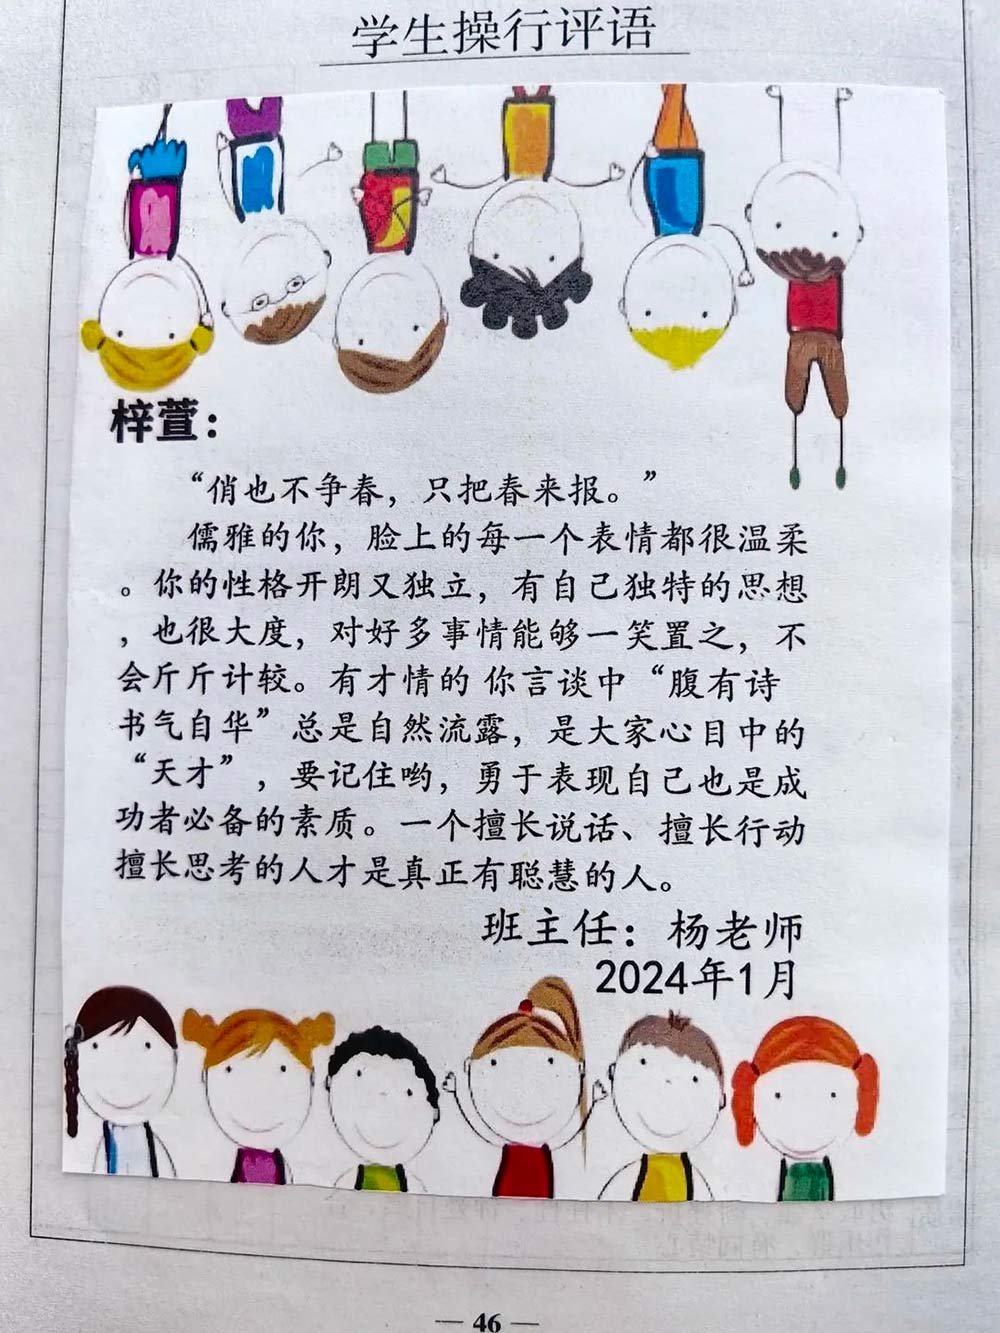 学生操行评语
梓萱：
“俏也不争春，只把春来报。”
儒雅的你，脸上的每一个表情都很温柔
。你的性格开朗又独立，有自己独特的思想
，也很大度，对好多事情能够一笑置之，不
会斤斤计较。有才情的 你言谈中“腹有诗
书气自华”总是自然流露，是大家心目中的
“天才”，要记住哟，勇于表现自己也是成
功者必备的素质。一个擅长说话、擅长行动
擅长思考的人才是真正有聪慧的人。
班主任：杨老师
2024年1月
— 46 —